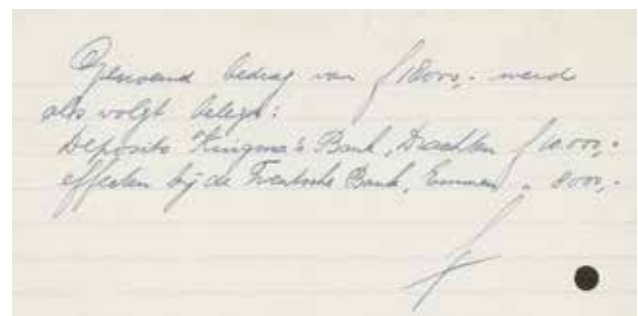 Genoemd bedrag van f 18000,- werd
als volgt belegd:
Deposito Kingma's Bank, Drachten f 10.000,-
effecten bij de Twentsche Bank, Emmen „ 8000,-